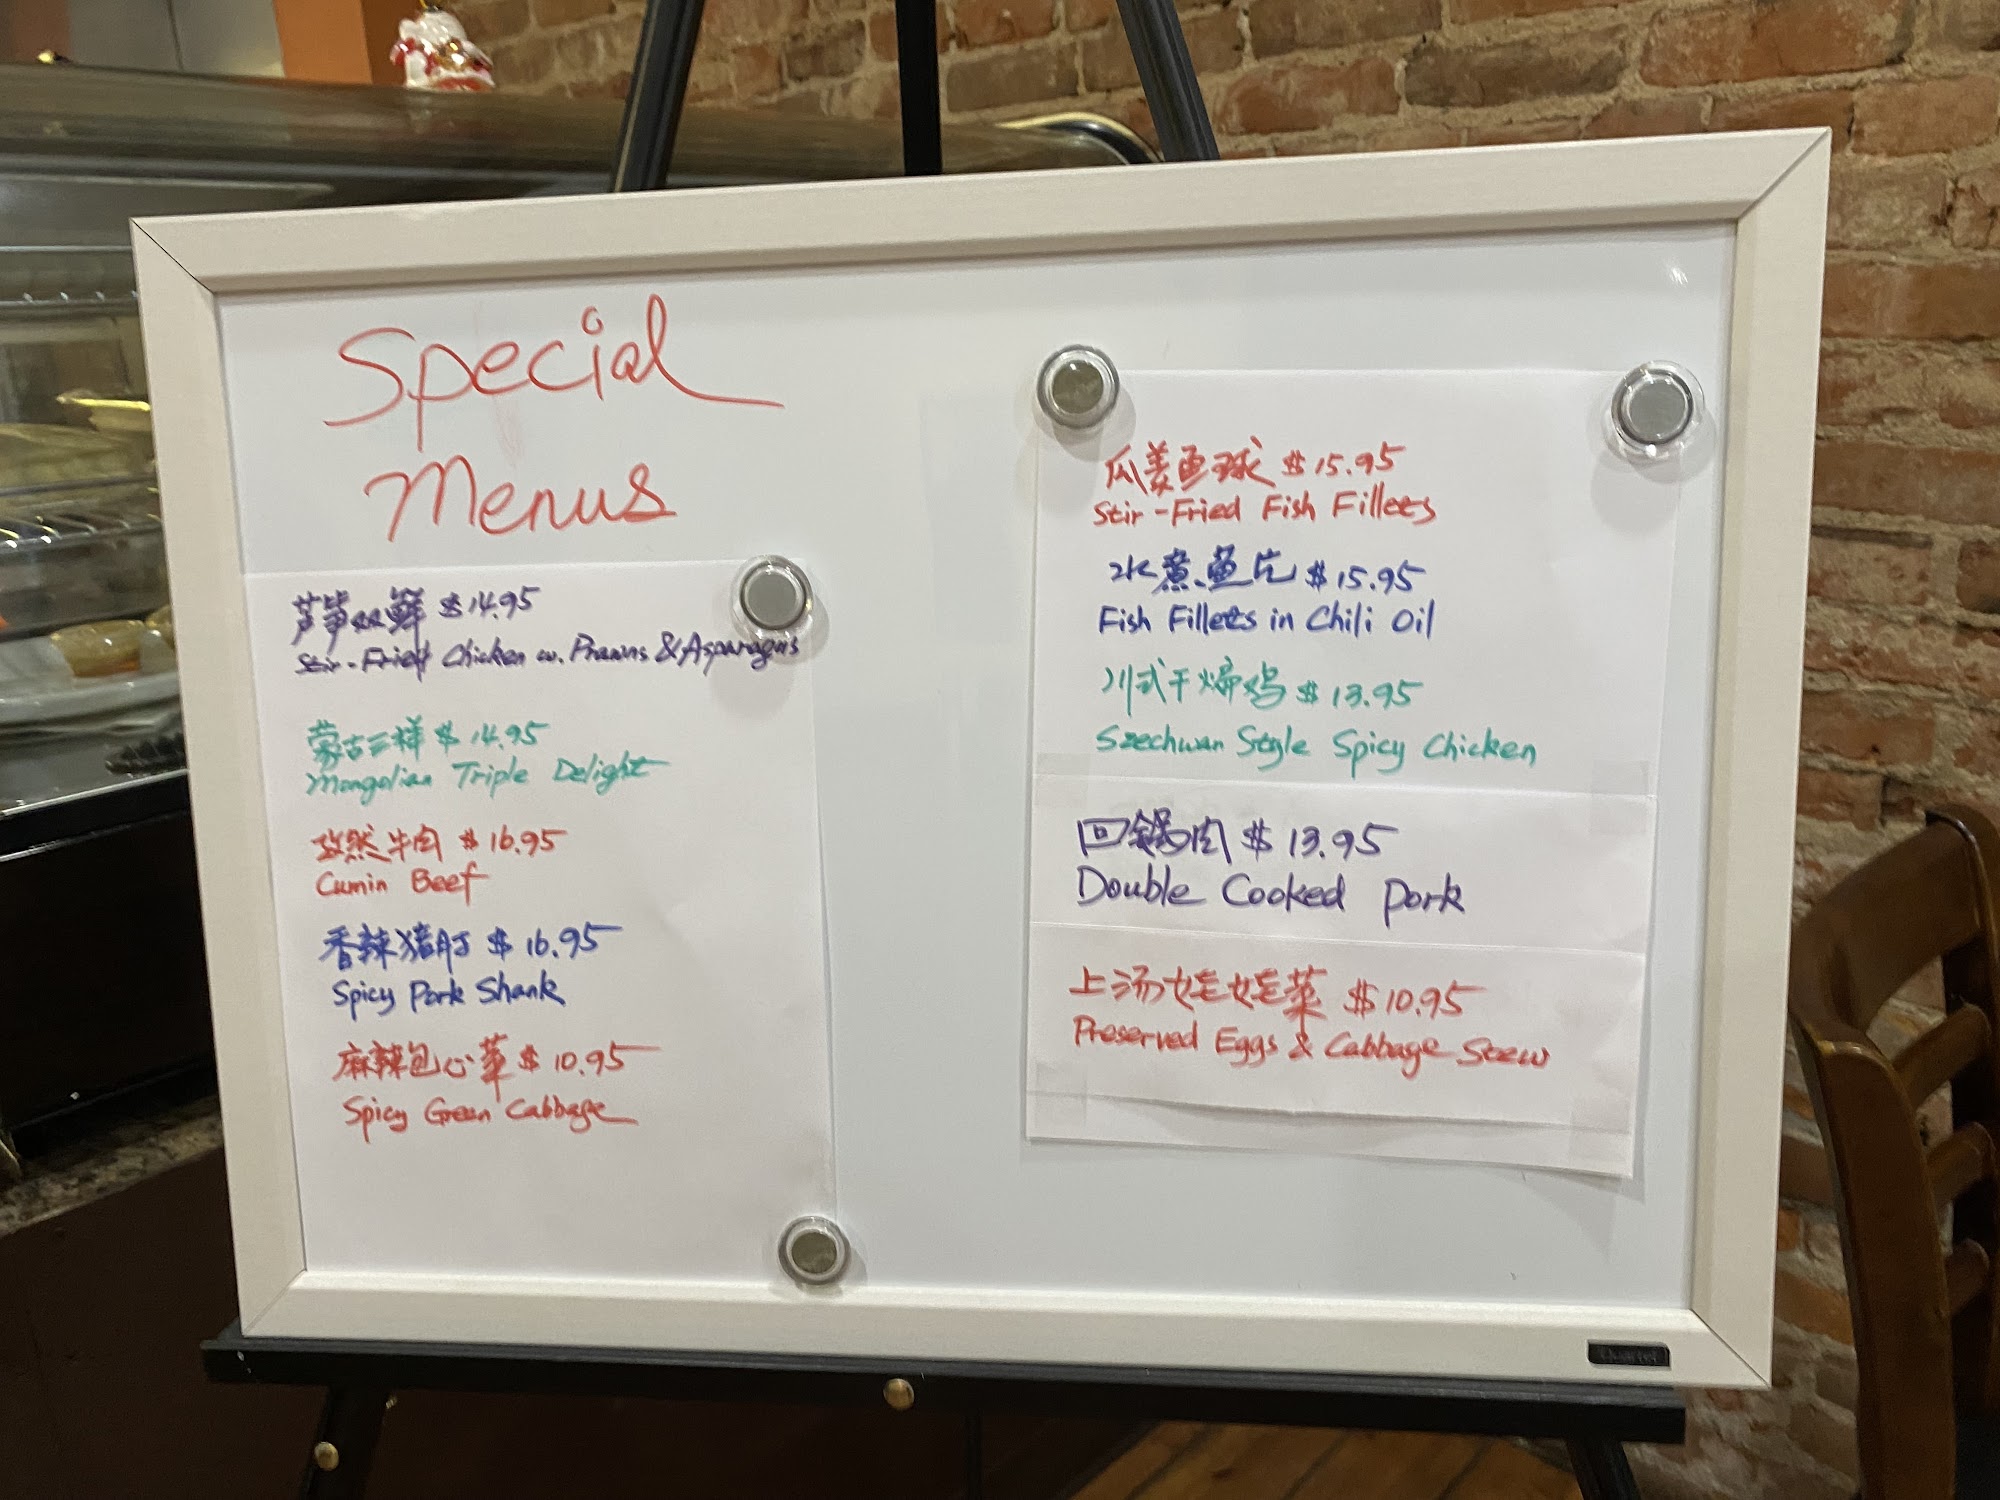 Special
Menus
芦笋双鲜 $14.95
Stir-Fried Chicken w. Prawns & Asparagus
蒙古三样 $14.95
Mongolian Triple Delight
孜然牛肉 $16.95
Cumin Beef
香辣猪肘 $16.95
Spicy Pork Shank
麻辣包心菜 $10.95
Spicy Green Cabbage
瓜姜鱼球 $15.95
Stir-Fried Fish Fillets
水煮鱼片 $15.95
Fish Fillets in Chili Oil
川式干煸鸡 $13.95
Szechwan Style Spicy Chicken
回锅肉 $13.95
Double Cooked Pork
上汤娃娃菜 $10.95
Preserved Eggs & Cabbage Stew
Quartet